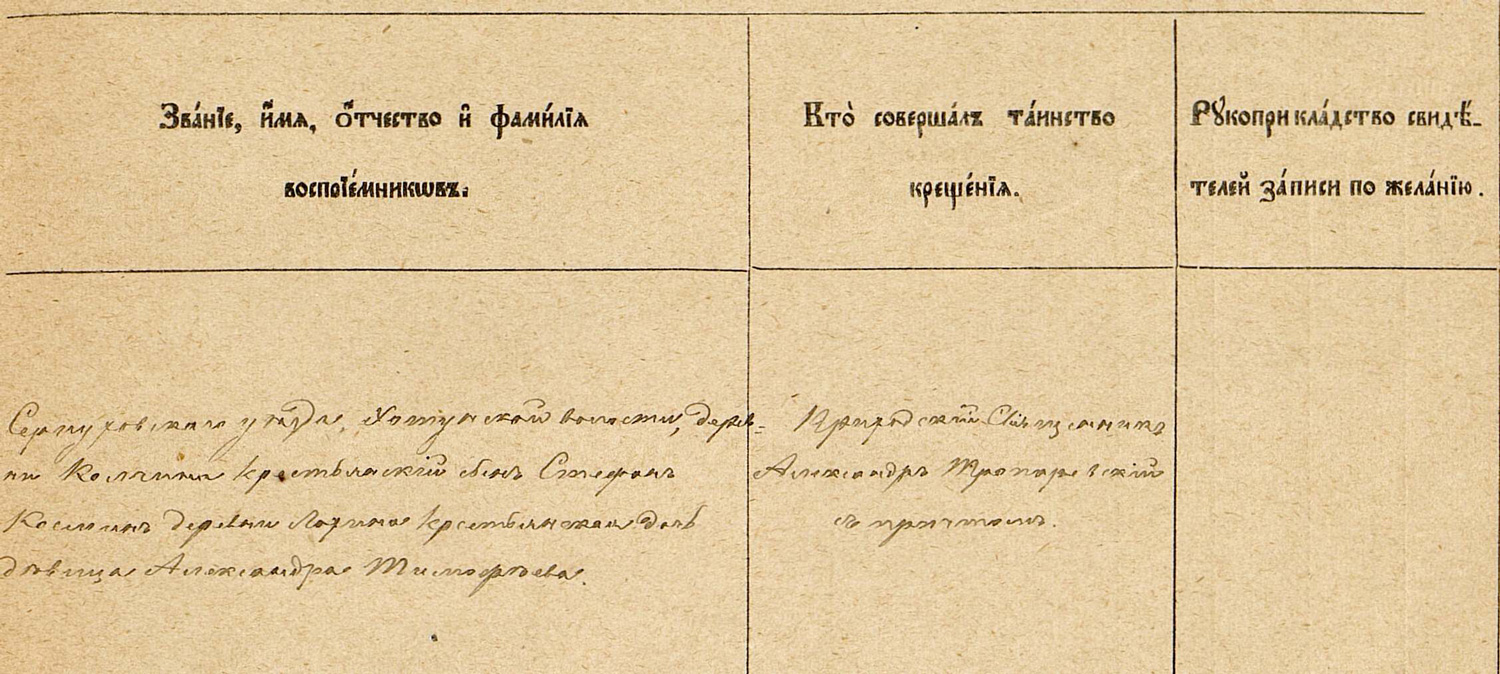 Зва́нїе, и҆́мѧ, ѻ҆́тчество и҆ фами́лїѧ
воспрїе́мникѡвъ.
Кто̀ соверша́лъ та́инство
креще́нїѧ.
Рꙋкоприкла́дство свидѣ́-
телей за́писи по жела́нїю.
Серпуховскаго уѣзда, Хатунской волости, дерев-
ни Колчина крестьянскій сынъ Стефанъ
Косминъ деревни крестьянская дочь
дѣвица Александра Тимофѣева.
Приходскій Священникъ
Александръ Тропаревскій
съ причтомъ.